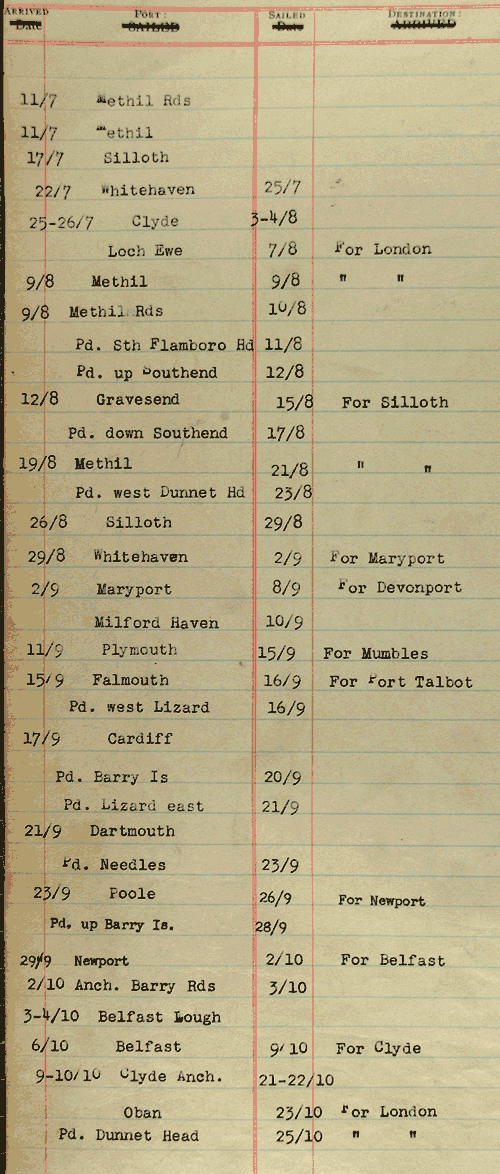 ARRIVED PORT: SAILED DESTINATION:
Date SAILED Date ARRIVED
11/7 Methil Rds
11/7 Methil
17/7 Silloth
22/7 Whitehaven 25/7
25-26/7 Clyde 3-4/8
Loch Ewe 7/8 For London
9/8 Methil 9/8 " "
9/8 Methil Rds 10/8
Pd. Sth Flamboro Hd 11/8
Pd. up Southend 12/8
12/8 Gravesend 15/8 For Silloth
Pd. down Southend 17/8
19/8 Methil 21/8 " "
Pd. west Dunnet Hd 23/8
26/8 Silloth 29/8
29/8 Whitehaven 2/9 For Maryport
2/9 Maryport 8/9 For Devonport
Milford Haven 10/9
11/9 Plymouth 15/9 For Mumbles
15/9 Falmouth 16/9 For Port Talbot
Pd. west Lizard 16/9
17/9 Cardiff
Pd. Barry Is 20/9
Pd. Lizard east 21/9
21/9 Dartmouth
Pd. Needles 23/9
23/9 Poole 26/9 For Newport
Pd. up Barry Is. 28/9
29/9 Newport 2/10 For Belfast
2/10 Anch. Barry Rds 3/10
3-4/10 Belfast Lough
6/10 Belfast 9/10 For Clyde
9-10/10 Clyde Anch. 21-22/10
Oban 23/10 For London
Pd. Dunnet Head 25/10 " "